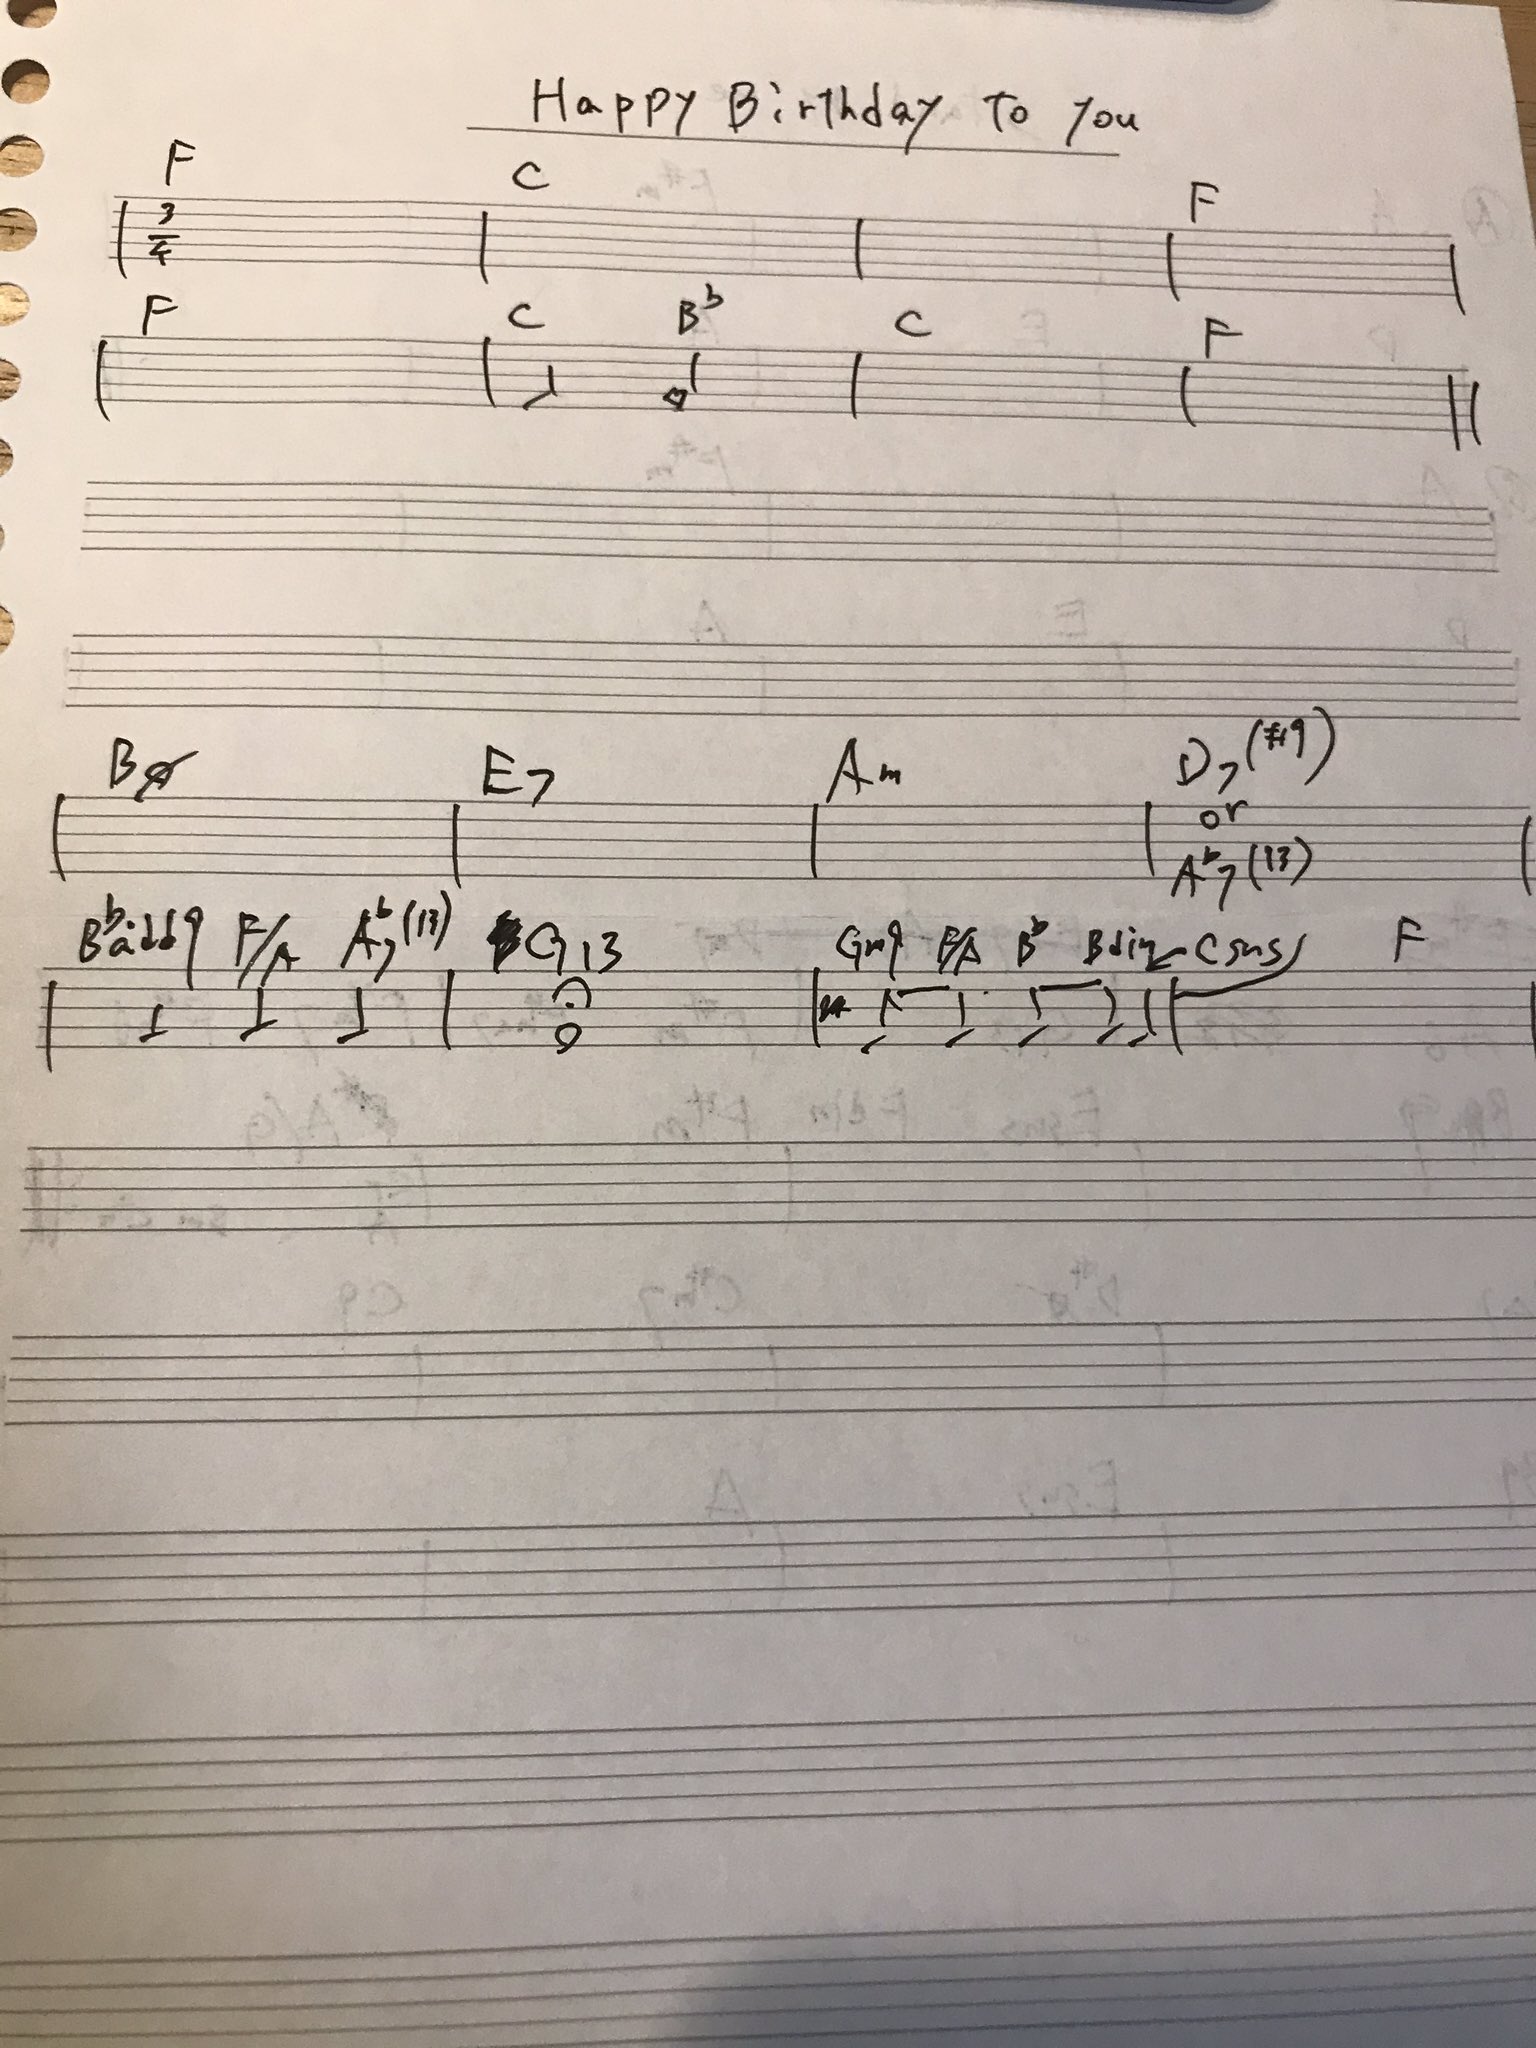 Happy Birthday To You
F C F
3/4
F C B♭ C F
Bø E7 Am D7(#9)
or
A♭7(13)
B♭add9 F/A A♭7(13) G13 Gm9 F/A B♭ Bdim Csus F